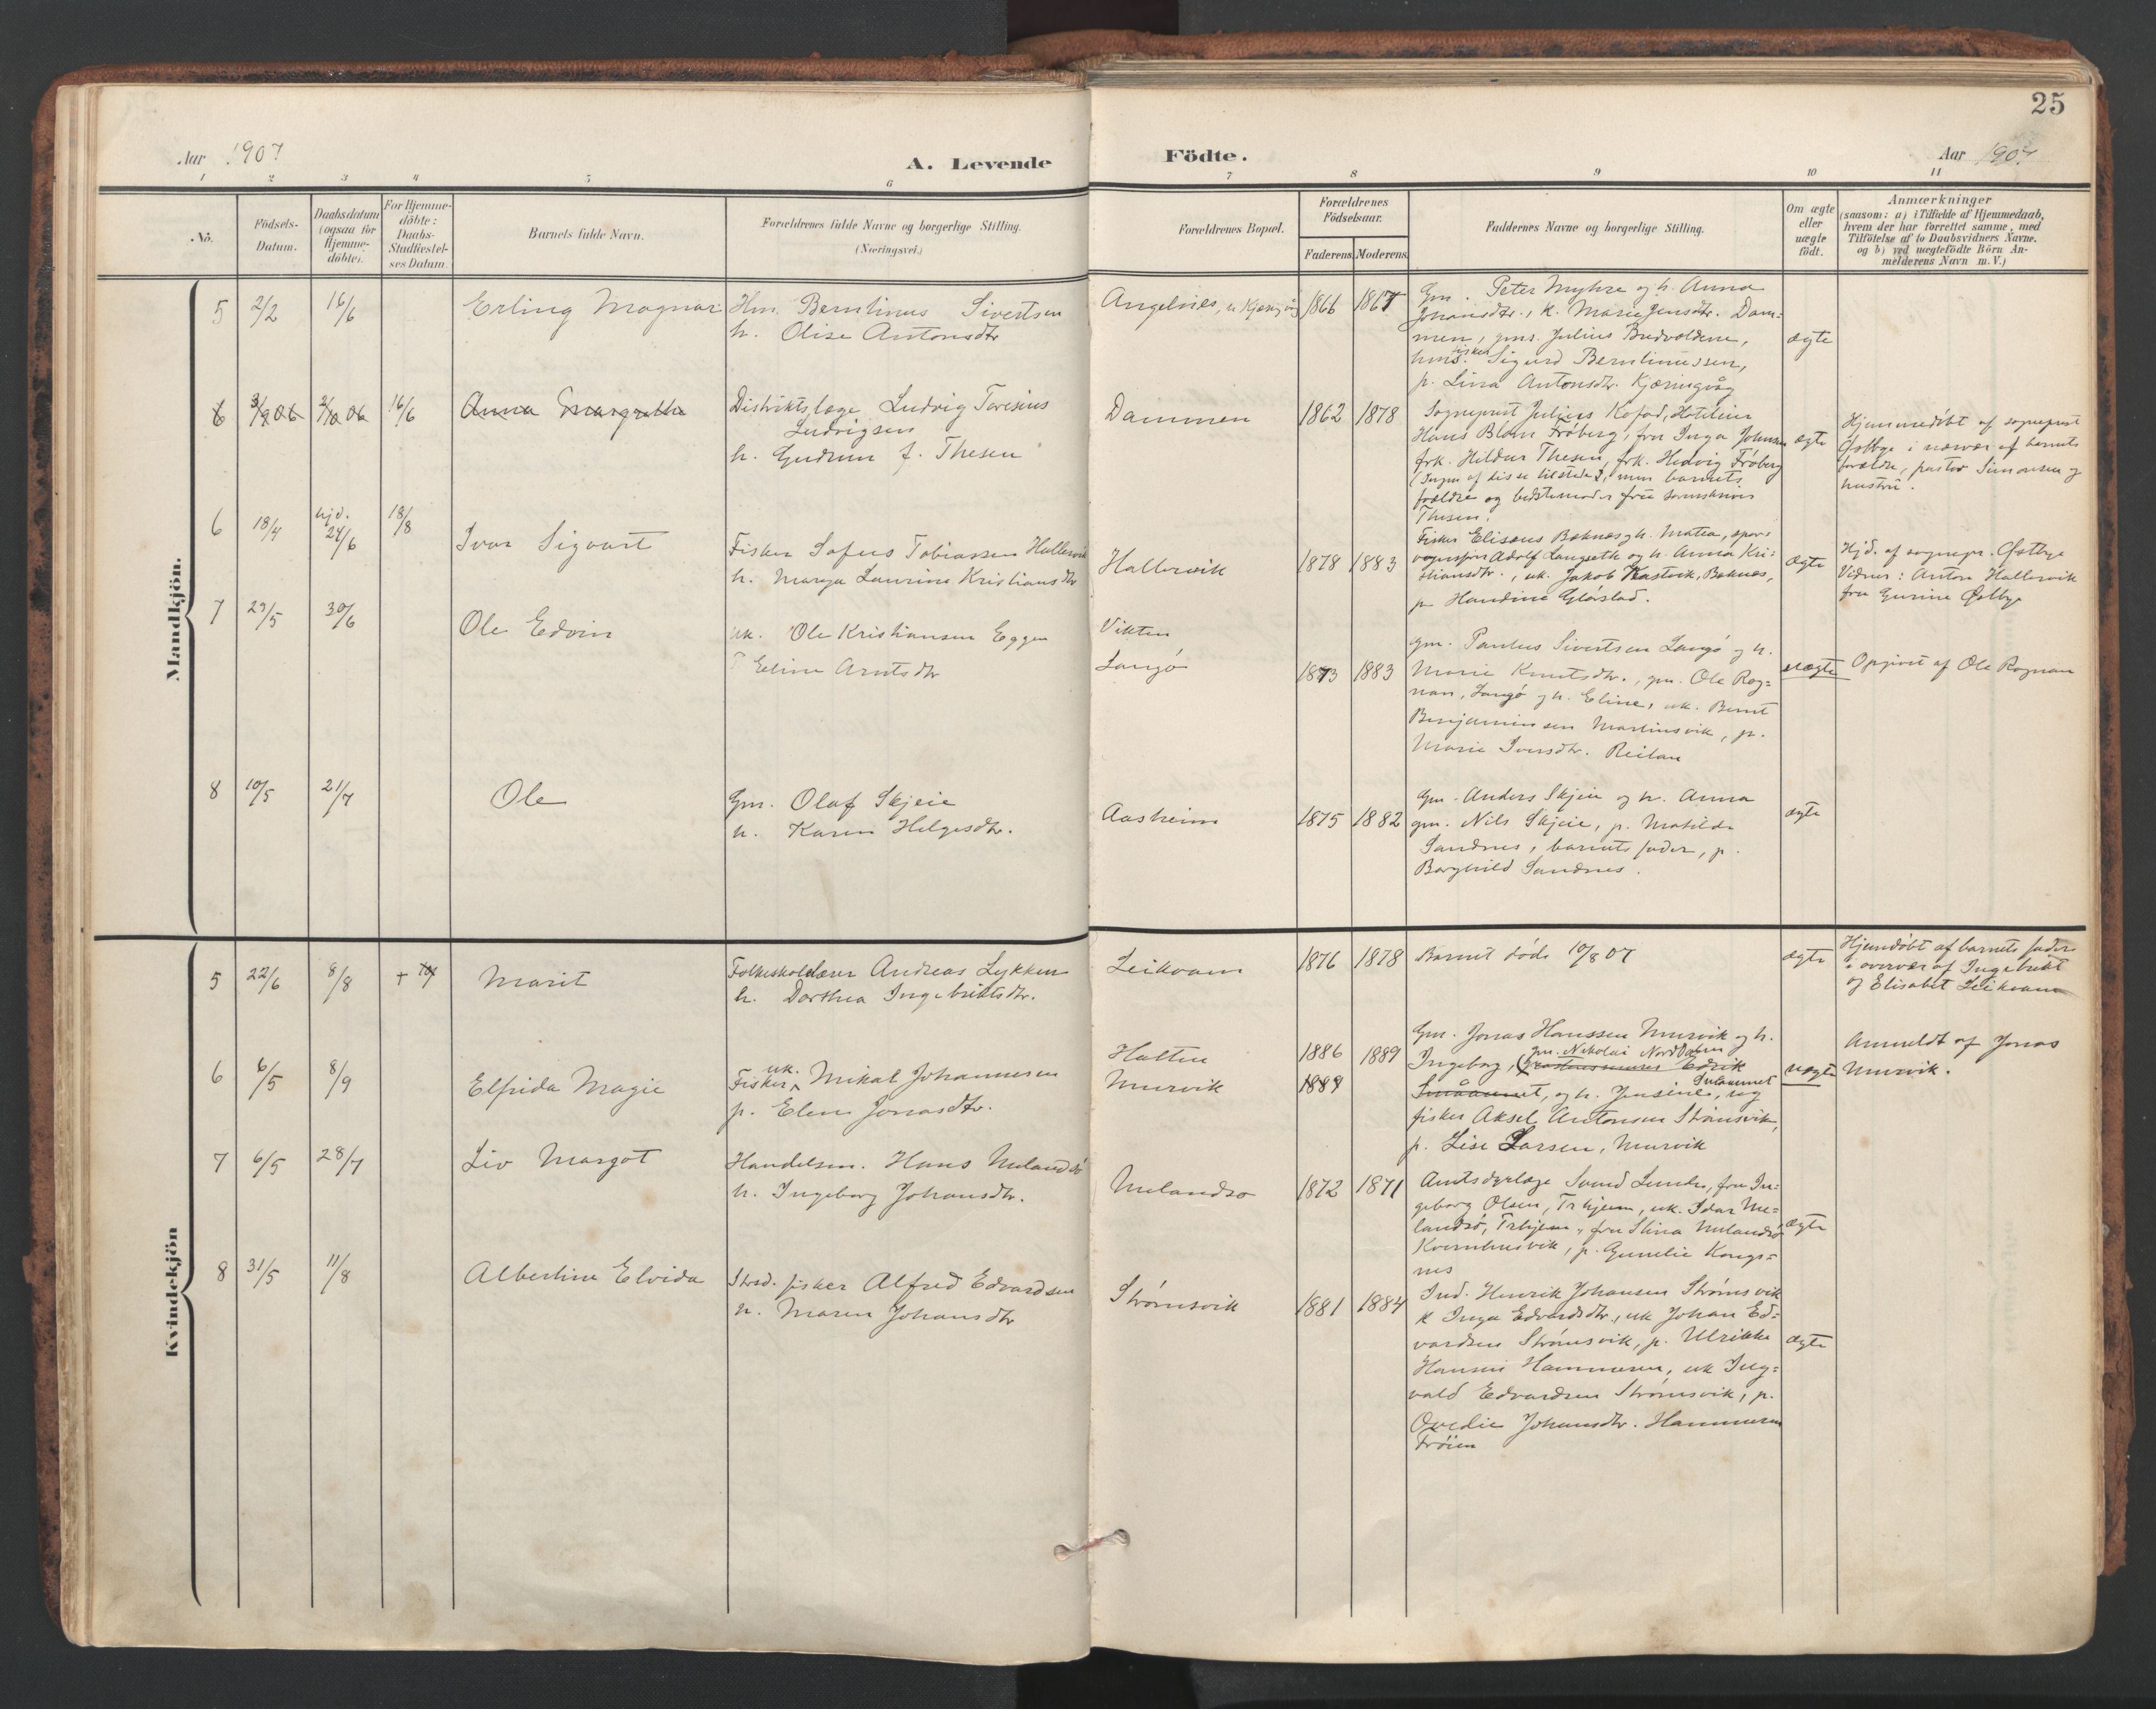 25
Aar 1907
A. Levende
Födte.
Aar 1907.
1 2 3 4 5 6 7 8 9 10 11
No.
Födsels-
Datum.
Daabsdatum
(ogsaa for
Hjemme-
döbte).
For Hjemme-
döbte:
Daabs-
Stadfæstel-
ses Datum.
Barnets fulde Navn.
Forældrenes fulde Navne og borgerlige Stilling.
(Næringsvei.)
Forældrenes Bopæl.
Forældrenes
Födselsaar.
Faderens. Moderens.
Faddernes Navne og borgerlige Stilling.
Om ægte
eller
uægte
födt.
Anmærkninger
(saasom: a) i Tilfælde af Hjemmedaab,
hvem der har forrettet samme, med
Tilföielse af to Daabsvidners Navne.
og b) ved uægtefödte Börn An-
melderens Navn m. V.)
Mandkjön.
5 2/2 16/6 Erling Magnar
Hm. Berntinus Sivertsen
h. Olise Antonsdtr
Angelvies, n Kjæringvåg 1866 1867
Gm. Peter Myhre og h. Anna
Johansdtr., k. Marie Jensdtr. Dam-
men, gms. Julius Bredvoldene,
hms. fisker Sigurd Berntinussen,
p. Lina Antonsdtr. Kjæringvåg
ægte
6 3/9 06 2/10 06 16/6 Anna Margrethe
Distriktslæge Ludvig Toresius
Ludvigsen
h. Gudrun f. Thesen
Dammen 1862 1878
Sogneprest Julius Kofod, Hoteleier
Hans Blom Fröberg, fru Inga Johnsen
frk. Hildur Thesen, frk. Hedvig Fröberg
(Ingen af dis er tilstede), men barnets
forældre og bedstemoder frue
Thesen.
ægte
Hjemmedöbt af sogneprest
Østbye i nærvær af barnets
forældre, pastor Simonsen og
hustru.
6 18/4 hjd. 24/6 18/8
Ivar Sigvart
Fisker Sofus Tobiassen Hallervik
h. Marya Laurine Kristiansdtr
Hallervik 1878 1883
Fisker Eliseus Boknes og h. Matea,
Adolf Langseth og h. Anna Kri-
stiansdtr., uk. Jakob Kastvik, Boknes,
p. Handine Glörstad.
ægte
Hjd. af sognepr. Østbye
Vidner: Anton Hallervik
fru Gurine Østbye
7 29/5 30/6 Ole Edvin
uk. Ole Kristiansen Eggen
P Eline Arntsdtr
Vikten
Langö
1873 1883
gm. Paulus Sivertsen Langö og h.
Marie Knutsdtr., gm. Ole Rog-
nan, Langö og h. Eline, uk. Bernt
Benjaminsen Martinsvik, p.
Marie Iversdtr. Reitan
uægte
Opgivet af Ole Rognan
8 10/5 21/7 Ole
Gm. Olaf Skjeie
h. Karen Helgesdtr.
Aasheim 1875 1882
Gm. Anders Skjeie og h. Anna
gm. Nils Skjeie, p. Matilde
Sandnes, barnets fader, p.
Borghild Sandnes.
ægte
Kvindekjön
5 22/6 8/8 + Marit
Folkeskolelærer Andreas Lykken
h. Dorthea Ingebriktsdtr.
Leikvam 1876 1878
Barnet död 10/8 07
ægte
Hjemdöbt af barnets fader
i overvær af Ingebrikt
og Elisabet Leikvam
6 6/5 8/9 Elfrida Magie
Fisker uk. Mikal Johannesen
p. Elen Jonasdtr.
Halten 1886 1889
Murvik 1889
Gm. Jonas Hanssen Murvik og h.
Ingeborg, gm. Nikolai Norddalen
Edvik
Småvannet, og h. Jensine, ug
fisker Aksel Antonsen Strömsvik,
p. Lise Larsen, Murvik
uægte
Anmeldt af Jonas
Murvik.
7 6/5 28/7 Liv Margot
Handelsm. Hans Melandsö
h. Ingeborg Johansdtr.
Melandsö 1872 1871
Amtsdyrlæge Svend Lunde, fru In-
geborg Olsen, Trhjem, uk. Idar Me-
landsö, Trhjem, fru Stina Melandsö
Kvernhusvik, p. Gunelie Kongs-
nes
ægte
8 31/5 11/8 Albertine Elvida
Strsd. fisker Alfred Edvardsen
h. Maren Johansdtr
Strömsvik 1881 1884
Ind. Henrik Johansen Strömsvik
k Inga Edvardsdtr., uk Johan Ed-
vardsen Strömsvik, p. Ulrikke
Hansen Hammeren, uk Ing-
vald Edvardsen Strömsvik, p.
Ovedie Johansdtr. Hammeren
Fröien
ægte